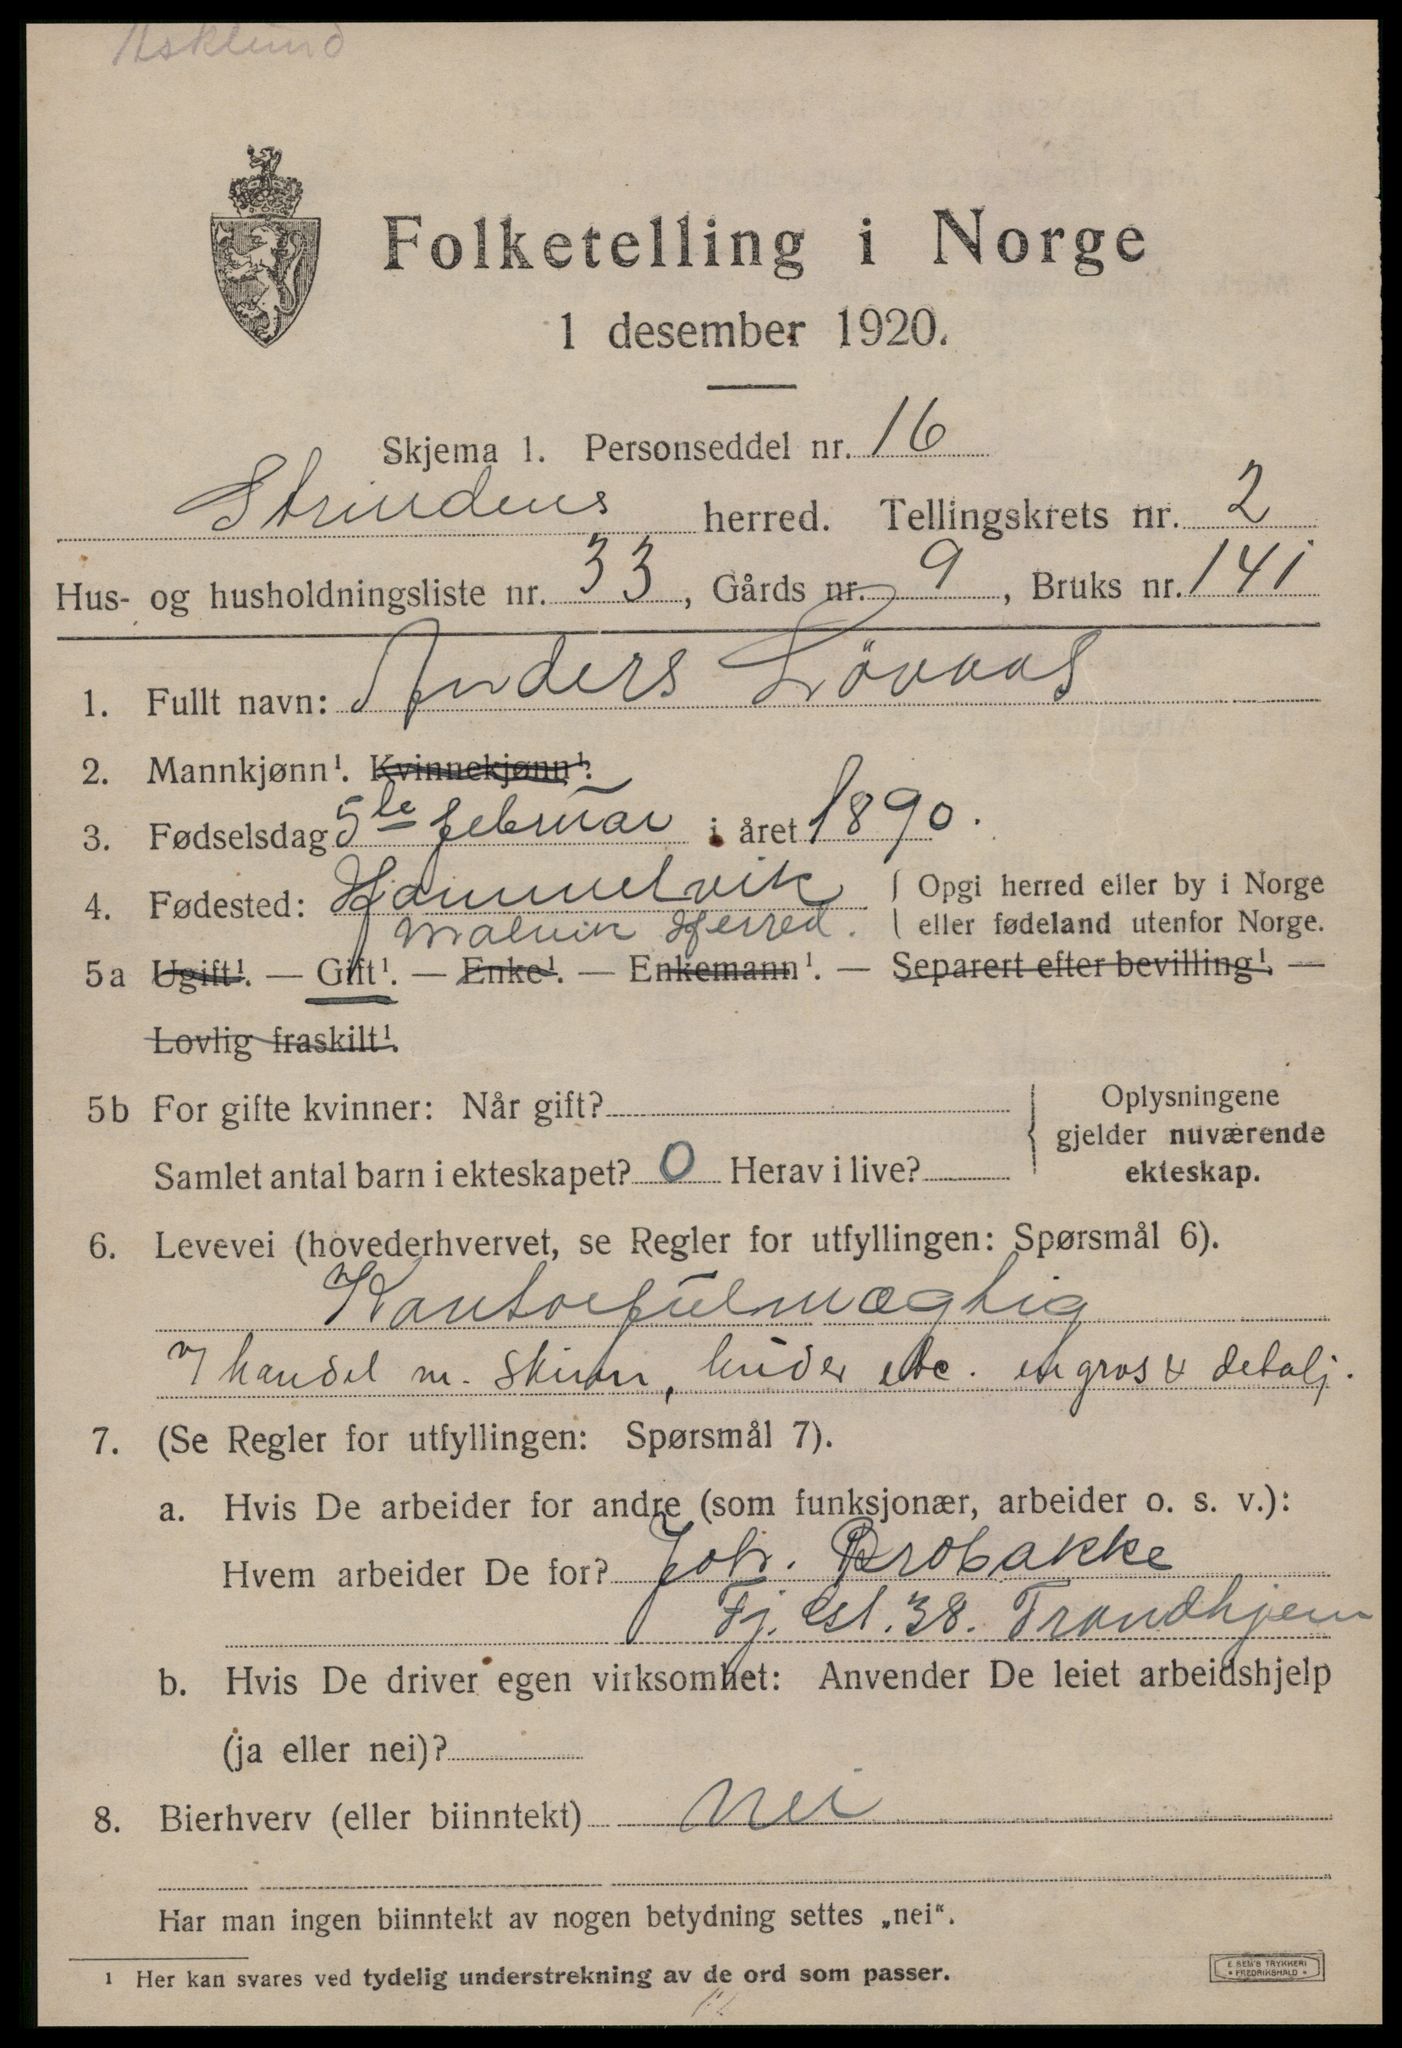 Asklund
Folketelling i Norge
1 desember 1920.
Skjema 1. Personseddel nr. 16
Strindens herred. Tellingskrets nr. 2
Hus- og husholdningsliste nr. 33, Gårds nr. 9, Bruks nr. 141
1. Fullt navn: Anders Lövaas
2. Mannkjønn¹. Kvinnekjønn¹.
3. Fødselsdag 5te februar i året 1890.
4. Fødested: Hommelvik { Opgi herred eller by i Norge
Malvik Herred. eller fødeland utenfor Norge.
5a Ugift¹. — Gift¹. — Enke¹. — Enkemann¹. — Separert efter bevilling¹. —
Lovlig fraskilt¹.
5b For gifte kvinner: Når gift? } Oplysningene
gjelder nuværende
Samlet antal barn i ekteskapet? 0 Herav i live? ekteskap.
6. Levevei (hovederhvervet, se Regler for utfyllingen: Spørsmål 6).
Kontorfulmægtig
I handel m. skinn, huder etc. en gros & detalj.
7. (Se Regler for utfyllingen: Spørsmål 7).
a. Hvis De arbeider for andre (som funksjonær, arbeider o. s. v.):
Hvem arbeider De for? Joh. Brobakke
Fj. gt. 38. Trondhjem
b. Hvis De driver egen virksomhet: Anvender De leiet arbeidshjelp
(ja eller nei)?
8. Bierhverv (eller biinntekt) nei
Har man ingen biinntekt av nogen betydning settes „nei“.
1 Her kan svares ved tydelig understrekning av de ord som passer.
E. SEM'S TRYKKERI
• FREDRIKSHALD •